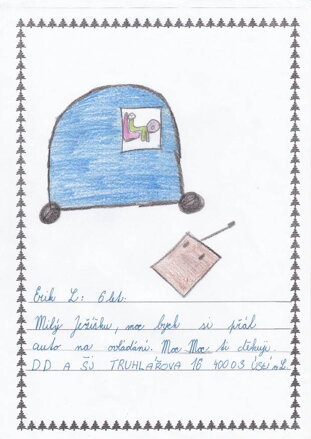 Erik L: 6 let.
Milý Ježíšku, moc bych si přál
auto na ovládání. Moc Moc ti děkuji.
DD A ŠJ TRUHLÁŘOVA 16 400 03 ÚSTÍ n.L.